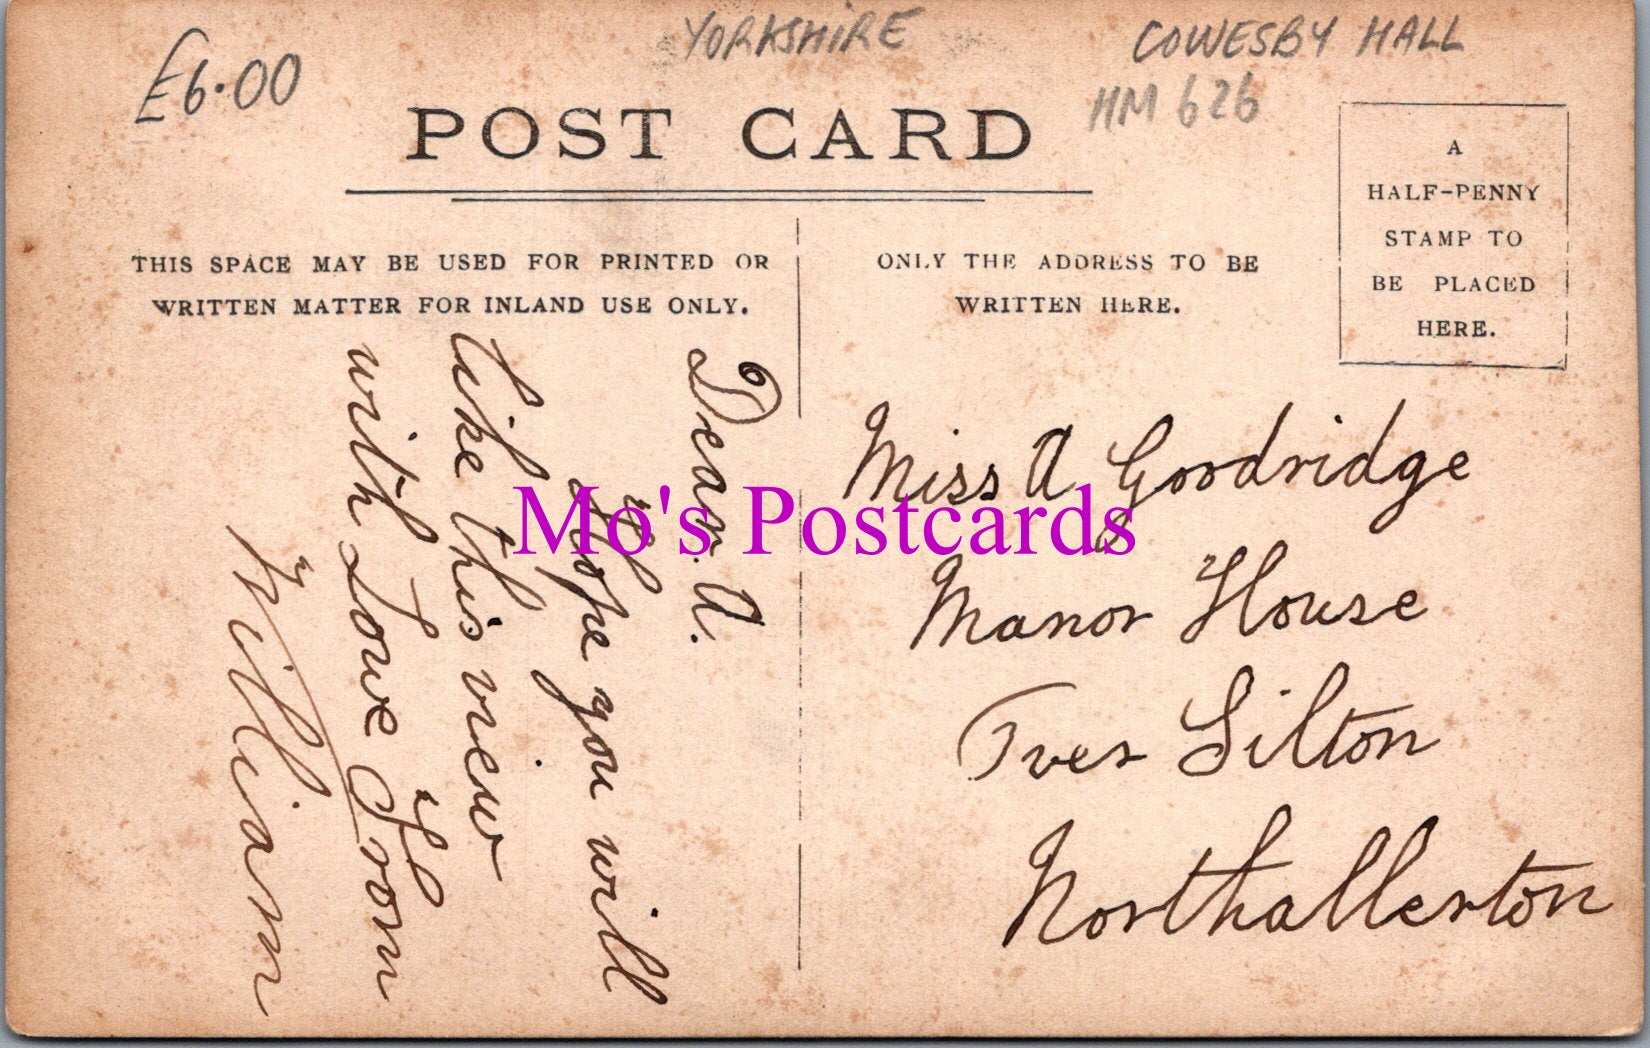 £6.00
YORKSHIRE
COWESBY HALL
HM 626
POST CARD
A
HALF-PENNY
STAMP TO
BE PLACED
HERE.
THIS SPACE MAY BE USED FOR PRINTED OR
WRITTEN MATTER FOR INLAND USE ONLY.
ONLY THE ADDRESS TO BE
WRITTEN HERE.
Dear. A.
Hope you will
like this view
with Love From
William
Miss A Goodridge
Manor House
Over Silton
Northallerton
Mo's Postcards